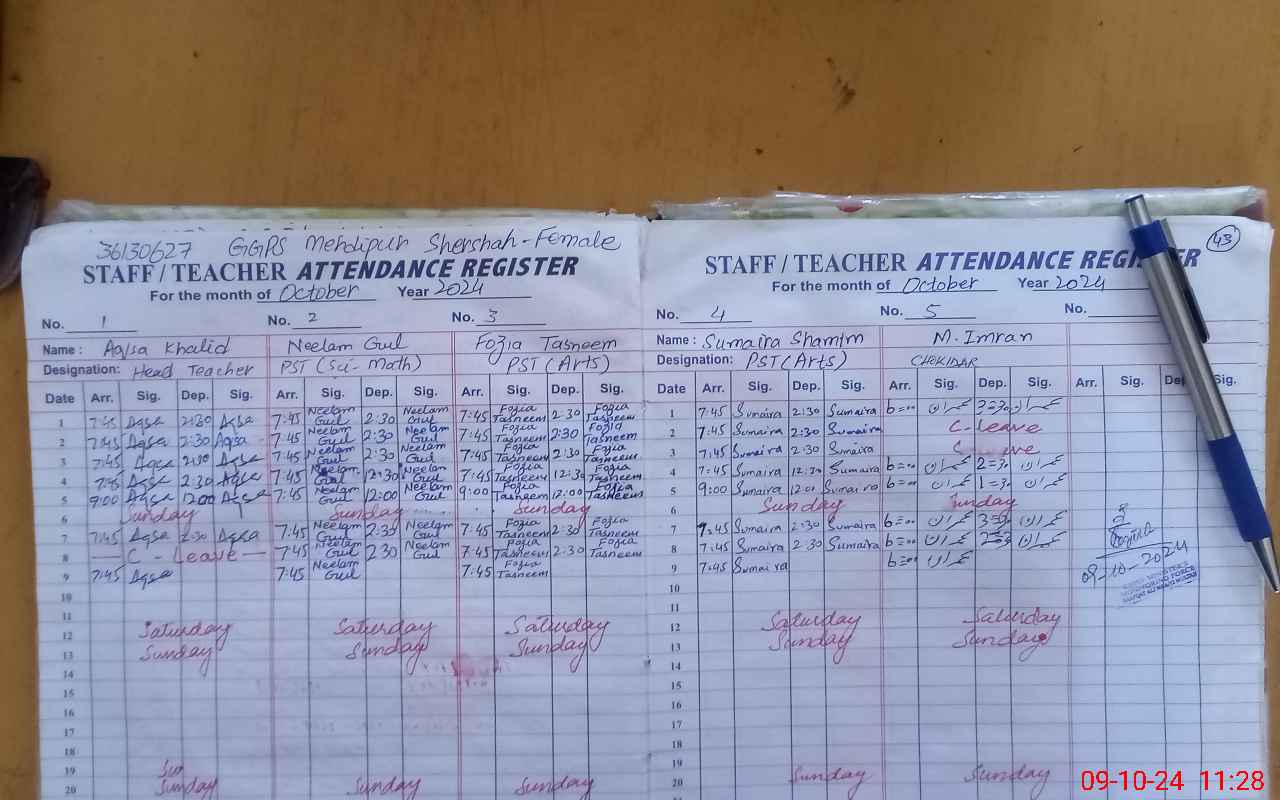 36130627 GGPS Mehdipur Shershah-Female
STAFF / TEACHER ATTENDANCE REGISTER
For the month of October Year 2024
No. 1 No. 2 No. 3
Name : Aqsa Khalid Neelam Gul Fozia Tasneem
Designation: Head Teacher PST (Sci-Math) PST (Arts)
Date Arr. Sig. Dep. Sig. Arr. Sig. Dep. Sig. Arr. Sig. Dep. Sig.
1 7:45 Aqsa 2:30 Aqsa 7:45 Neelam Gul 2:30 Neelam Gul 7:45 Fozia Tasneem 2:30 Fozia Tasneem
2 7:45 Aqsa 2:30 Aqsa 7:45 Neelam Gul 2:30 Neelam Gul 7:45 Fozia Tasneem 2:30 Fozia Tasneem
3 7:45 Aqsa 2:30 Aqsa 7:45 Neelam Gul 2:30 Neelam Gul 7:45 Fozia Tasneem 2:30 Fozia Tasneem
4 7:45 Aqsa 2:30 Aqsa 7:45 Neelam Gul 12:30 Neelam Gul 7:45 Fozia Tasneem 12:30 Fozia Tasneem
5 9:00 Aqsa 12:00 Aqsa 7:45 Neelam Gul 12:00 Neelam Gul 9:00 Fozia Tasneem 12:00 Fozia Tasneem
6 Sunday Sunday Sunday
7 7:45 Aqsa 2:30 Aqsa 7:45 Neelam Gul 2:30 Neelam Gul 7:45 Fozia Tasneem 2:30 Fozia Tasneem
8 C - Leave 7:45 Neelam Gul 2:30 Neelam Gul 7:45 Fozia Tasneem 2:30 Fozia Tasneem
9 7:45 Aqsa 7:45 Neelam Gul 7:45 Fozia Tasneem
10
11
12 Saturday Saturday Saturday
13 Sunday Sunday Sunday
14
15
16
17
18
19
20 Sunday Sunday Sunday
43
STAFF / TEACHER ATTENDANCE REGISTER
For the month of October Year 2024
No. 4 No. 5 No.
Name : Sumaira Shamim M.Imran
Designation: PST (Arts) CHEKIDAR
Date Arr. Sig. Dep. Sig. Arr. Sig. Dep. Sig. Arr. Sig. Sig.
1 7:45 Sumaira 2:30 Sumaira عمران عمران
2 7:45 Sumaira 2:30 Sumaira C-Leave
3 7:45 Sumaira 2:30 Sumaira
4 7:45 Sumaira 12:30 Sumaira عمران 2=30 عمران
5 9:00 Sumaira 12:00 Sumaira عمران 1=30 عمران
6 Sunday Sunday
7 7:45 Sumaira 2:30 Sumaira عمران عمران
8 7:45 Sumaira 2:30 Sumaira عمران عمران
9 7:45 Sumaira عمران
09-10-2024
10
11
12 Saturday Saturday
13 Sunday Sunday
14
15
16
17
18
19
20 Sunday Sunday
09-10-24 11:28